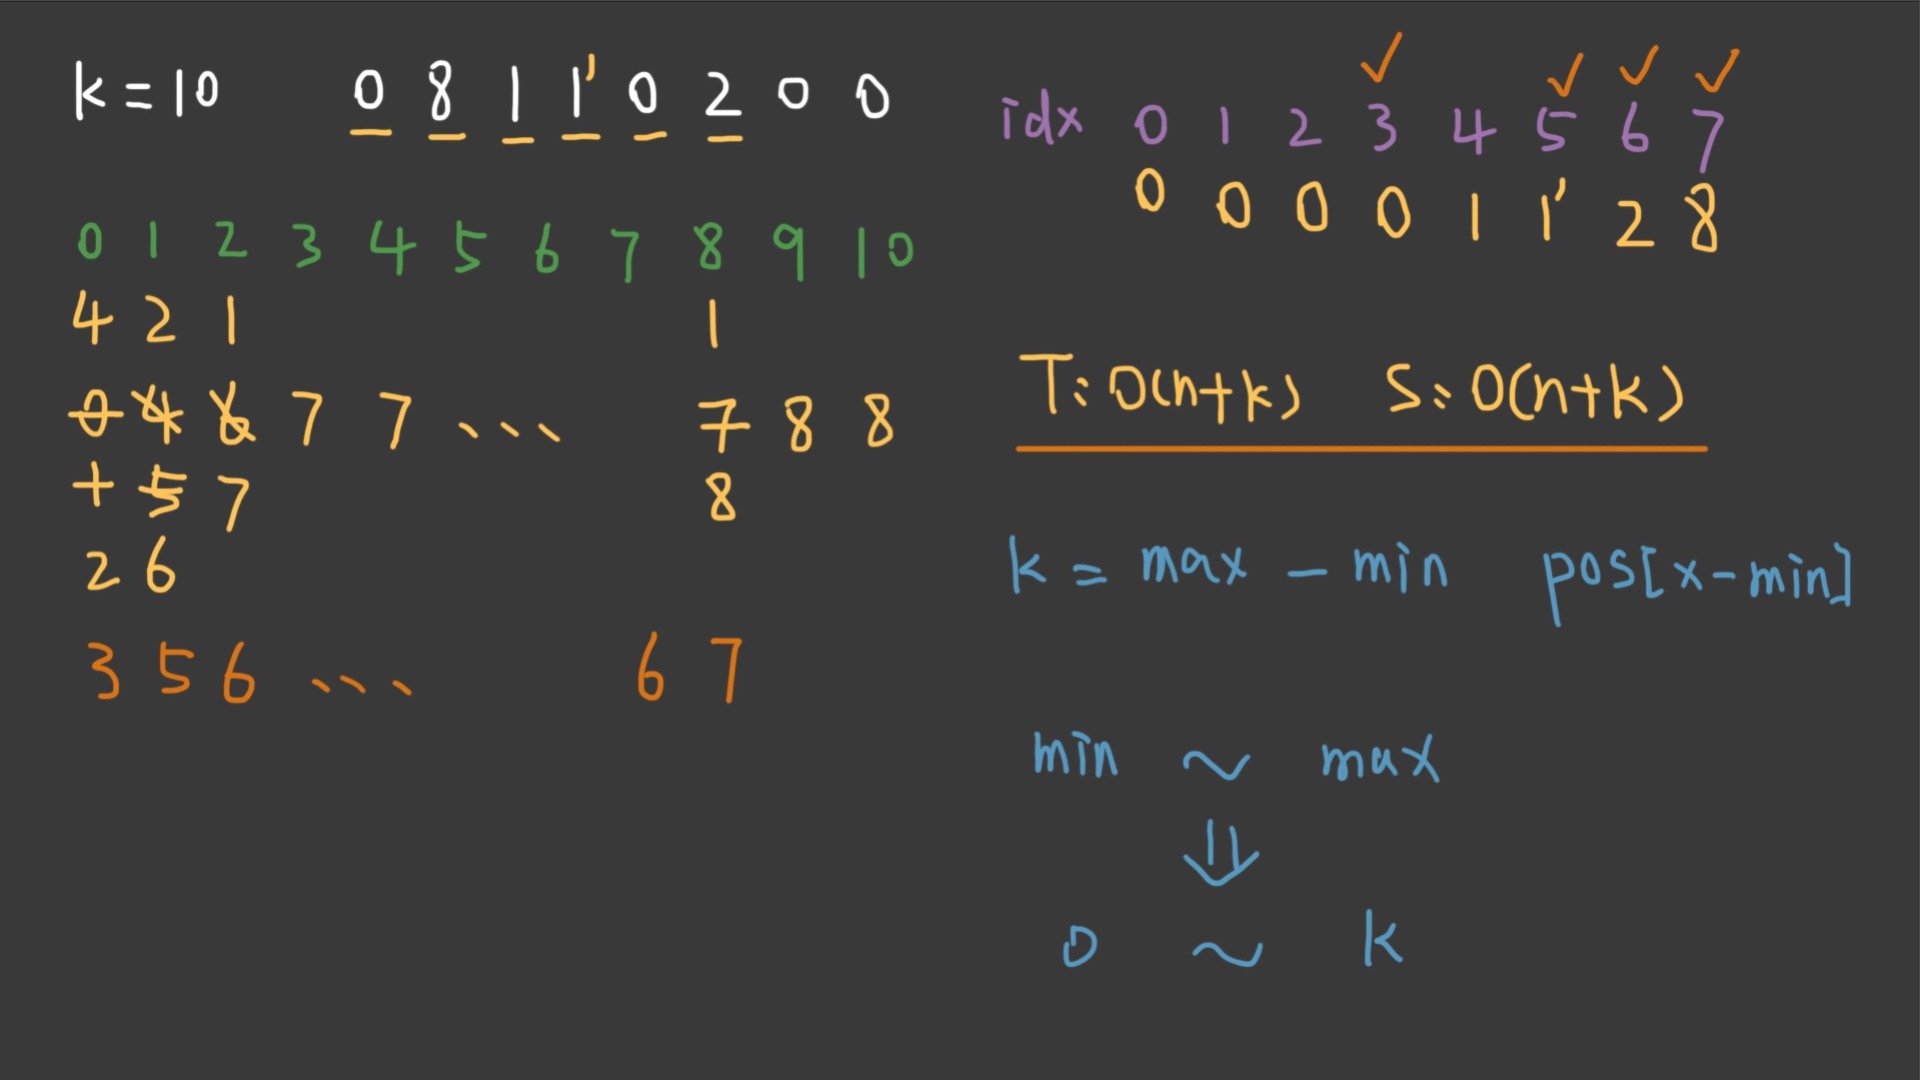 k = 10 0 8 1 1' 0 2 0 0
0 1 2 3 4 5 6 7 8 9 10
4 2 1 1
0 4 6 7 7 ... 7 8 8
1 5 7 8
2 6
3 5 6 ... 6 7
idx 0 1 2 3 4 5 6 7
0 0 0 0 1 1' 2 8
T: O(n+k) S: O(n+k)
k = max - min pos[x-min]
min ~ max
⇓
0 ~ k